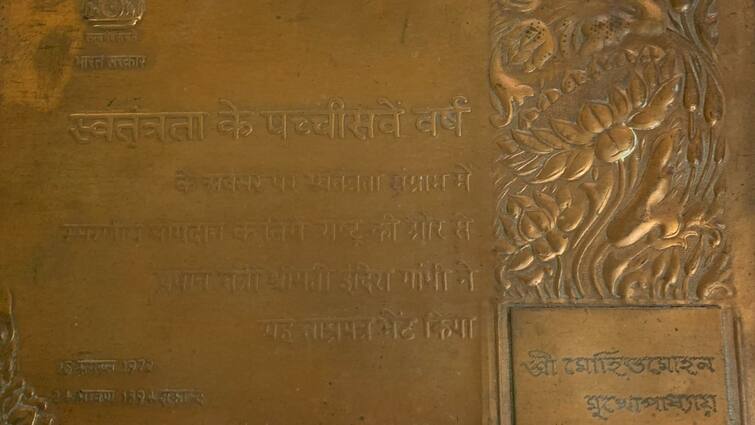 भारत सरकार
स्वतंत्रता के पच्चीसवें वर्ष
के अवसर पर स्वतंत्रता संग्राम में
स्मरणीय योगदान के लिए राष्ट्र की ओर से
प्रधान मंत्री श्रीमती इंदिरा गांधी ने
यह ताम्रपत्र भेंट किया
15 अगस्त 1972
24 श्रावण 1894 शकाब्द
শ্রী মোহিতমোহন
মুখোপাধ্যায়